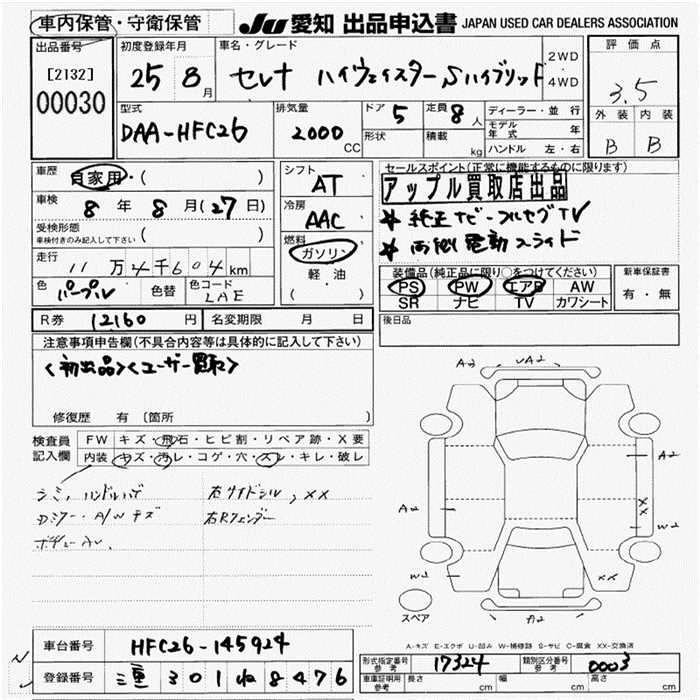 車内保管・守衛保管 JU 愛知 出品申込書 JAPAN USED CAR DEALERS ASSOCIATION
出品番号 初度登録年月 車名・グレード 評価点
[2132] 00030 25 8月 セレナ ハイウェイスターSハイブリッド 2WD・4WD 3.5
型式 排気量 ドア 5 定員 8人 ディーラー・並行 外装 内装
DAA-HFC26 2000CC 形状 積載 kg モデル年式 年 B B
ハンドル 左・右
車歴 自家用・( ) シフト AT セールスポイント(正常に機能するものに限ります)
車検 8年 8月(27日) 冷房 AAC アップル買取店出品
受検形態 車検付きのみ記入して下さい ( ) 燃料 ガソリン・軽油 ( ) *純正ナビ-フルセグTV
走行 11万4千604km *両側電動スライド
色 パープル 色替 色コード LAE 装備品(純正品に限り○をつけてください) 新車保証書
PS PW エアB AW 有・無
SR ナビ TV カワシート
R券 12160円 名変期限 月 日 後日品
注意事項申告欄(不具合内容等は具体的に記入して下さい)
<初出品><ユーザー買取>
修復歴 有 〔箇所 〕
検査員記入欄 FW キズ・飛石・ヒビ割・リペア跡・X要
内装 キズ・汚レ・コゲ・穴・スレ・キレ・破レ
シミ、ハンドルハゲ 右サイドシル,XX
カミラー・A/Wキズ 右Rフェンダー
A2 A2
A2
A2 XX
W2
W2 XX
A2
スペア
A-キズ E-エクボ U-凹み W-補修跡 S-サビ C-腐食 XX-交換済
車台番号 HFC26-145924 形式指定番号 参考 17324 類別区分番号 参考 0003
登録番号 三重 301 ね 8476 車庫証明用 参考 長さ cm 幅 cm 高さ cm